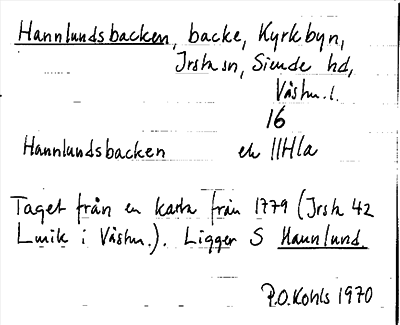 Hannlundsbacken, backe, Kyrkbyn,
Irsta sn, Siende hd,
Västm. l.
16
Hannlundsbacken ek 11H1a
Taget från en karta från 1779 (Irsta 42
Lmik i Västm.). Ligger S Hannlund.
P.O.Kohls 1970